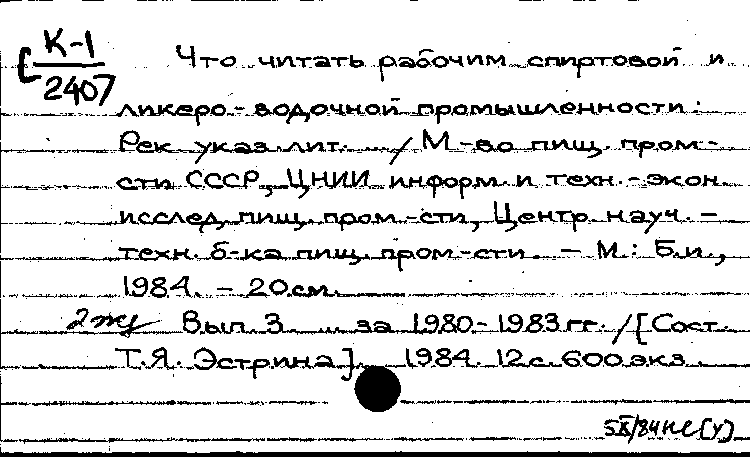 [К-1
2407
Что читать рабочим спиртовой и
ликеро-водочной промышленности:
Рек. указ. лит. ... / М-во пищ. пром-
сти СССР, ЦНИИ информ. и техн.-экон.
исслед. пищ. пром-сти, Центр. науч.-
техн. б-ка пищ. пром-сти. - М.: Б.и.,
1984. - 20см.
2жу Вып. 3. ... за 1980-1983 гг. / [Сост.
Т.Я. Эстрина]. 1984. 12с. 600 экз.